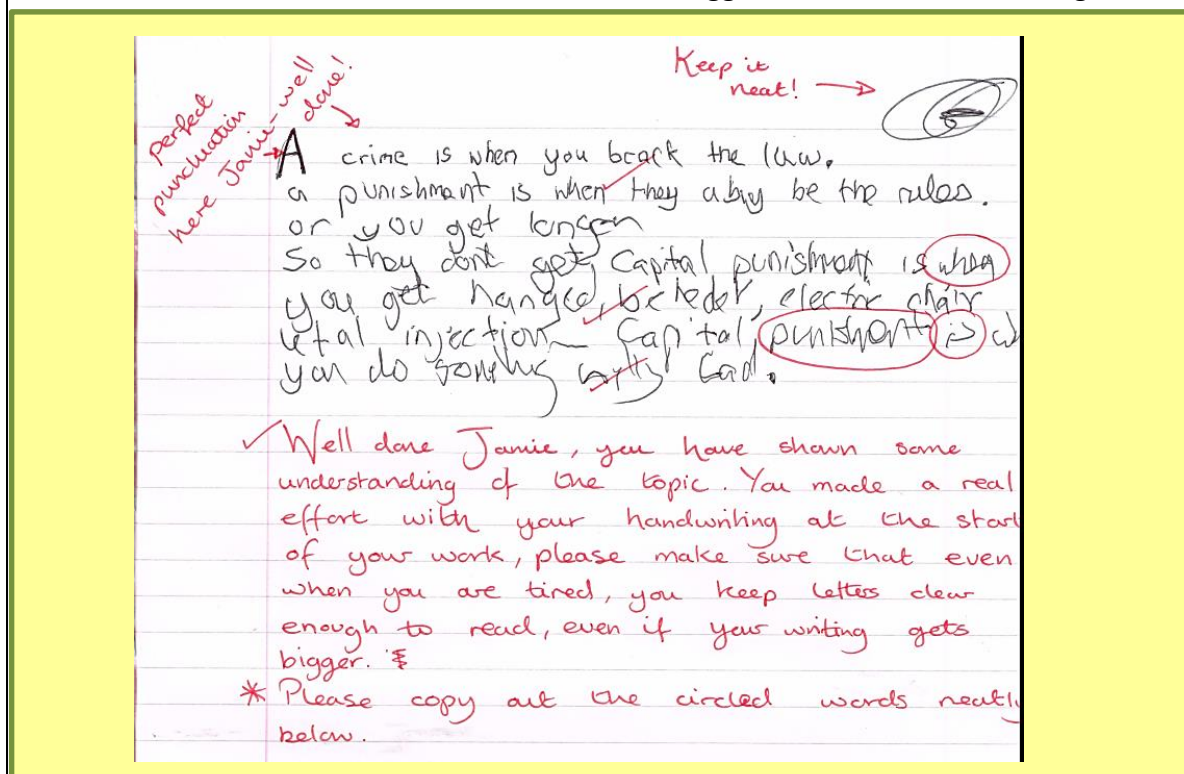 Keep it
neat!
perfect
punctuation
here Jamie - well
done!
A crime is when you brack the law.
a punishmant is when they abuy be the rules.
or you get longen
So they dont get, Capital punishmant is when
you get hanged, be heder, electric chair
letal injection Capital punishont is w
you do somthing bad.
Well done Jamie, you have shown some
understanding of the topic. You made a real
effort with your handwriting at the start
of your work, please make sure that even
when you are tired, you keep letters clear
enough to read, even if your writing gets
bigger.
* Please copy out the circled words neatly
below.